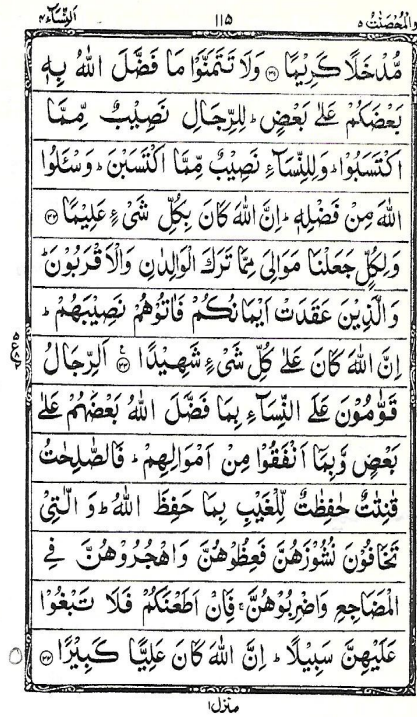 والمحصنت ۵ ۱۱۵ النسآء ۴
مُّدْخَلًا كَرِيْمًا ﴿۳۱﴾ وَلَا تَتَمَنَّوْا مَا فَضَّلَ اللّٰهُ بِهٖ
بَعْضَكُمْ عَلٰى بَعْضٍ ؕ لِلرِّجَالِ نَصِيْبٌ مِّمَّا
اكْتَسَبُوْا ؕ وَلِلنِّسَآءِ نَصِيْبٌ مِّمَّا اكْتَسَبْنَ ؕ وَسْـَٔلُوا
اللّٰهَ مِنْ فَضْلِهٖ ؕ اِنَّ اللّٰهَ كَانَ بِكُلِّ شَيْءٍ عَلِيْمًا ﴿۳۲﴾
وَلِكُلٍّ جَعَلْنَا مَوَالِيَ مِمَّا تَرَكَ الْوَالِدٰنِ وَالْاَقْرَبُوْنَ ؕ
وَالَّذِيْنَ عَقَدَتْ اَيْمَانُكُمْ فَاٰتُوْهُمْ نَصِيْبَهُمْ ؕ
اِنَّ اللّٰهَ كَانَ عَلٰى كُلِّ شَيْءٍ شَهِيْدًا ﴿۳۳﴾ اَلرِّجَالُ
قَوّٰمُوْنَ عَلَى النِّسَآءِ بِمَا فَضَّلَ اللّٰهُ بَعْضَهُمْ عَلٰى
بَعْضٍ وَّبِمَاۤ اَنْفَقُوْا مِنْ اَمْوَالِهِمْ ؕ فَالصّٰلِحٰتُ
قٰنِتٰتٌ حٰفِظٰتٌ لِّلْغَيْبِ بِمَا حَفِظَ اللّٰهُ ؕ وَالّٰتِيْ
تَخَافُوْنَ نُشُوْزَهُنَّ فَعِظُوْهُنَّ وَاهْجُرُوْهُنَّ فِي
الْمَضَاجِعِ وَاضْرِبُوْهُنَّ ۚ فَاِنْ اَطَعْنَكُمْ فَلَا تَبْغُوْا
عَلَيْهِنَّ سَبِيْلًا ؕ اِنَّ اللّٰهَ كَانَ عَلِيًّا كَبِيْرًا ﴿۳۴﴾
منزل ۱